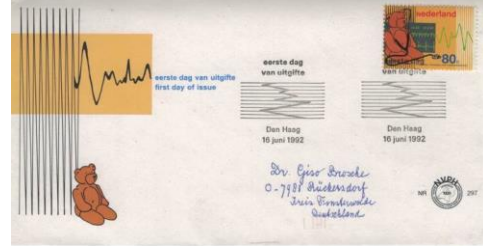 nederland
80c
eerste dag van uitgifte
first day of issue
eerste dag
van uitgifte
Den Haag
16 juni 1992
eerste dag
van uitgifte
Den Haag
16 juni 1992
Dr. Giso Broscke
O-7981 Rückersdorf
Kreis Finsterwalde
Deutschland
NR
N.V.P.H.
297